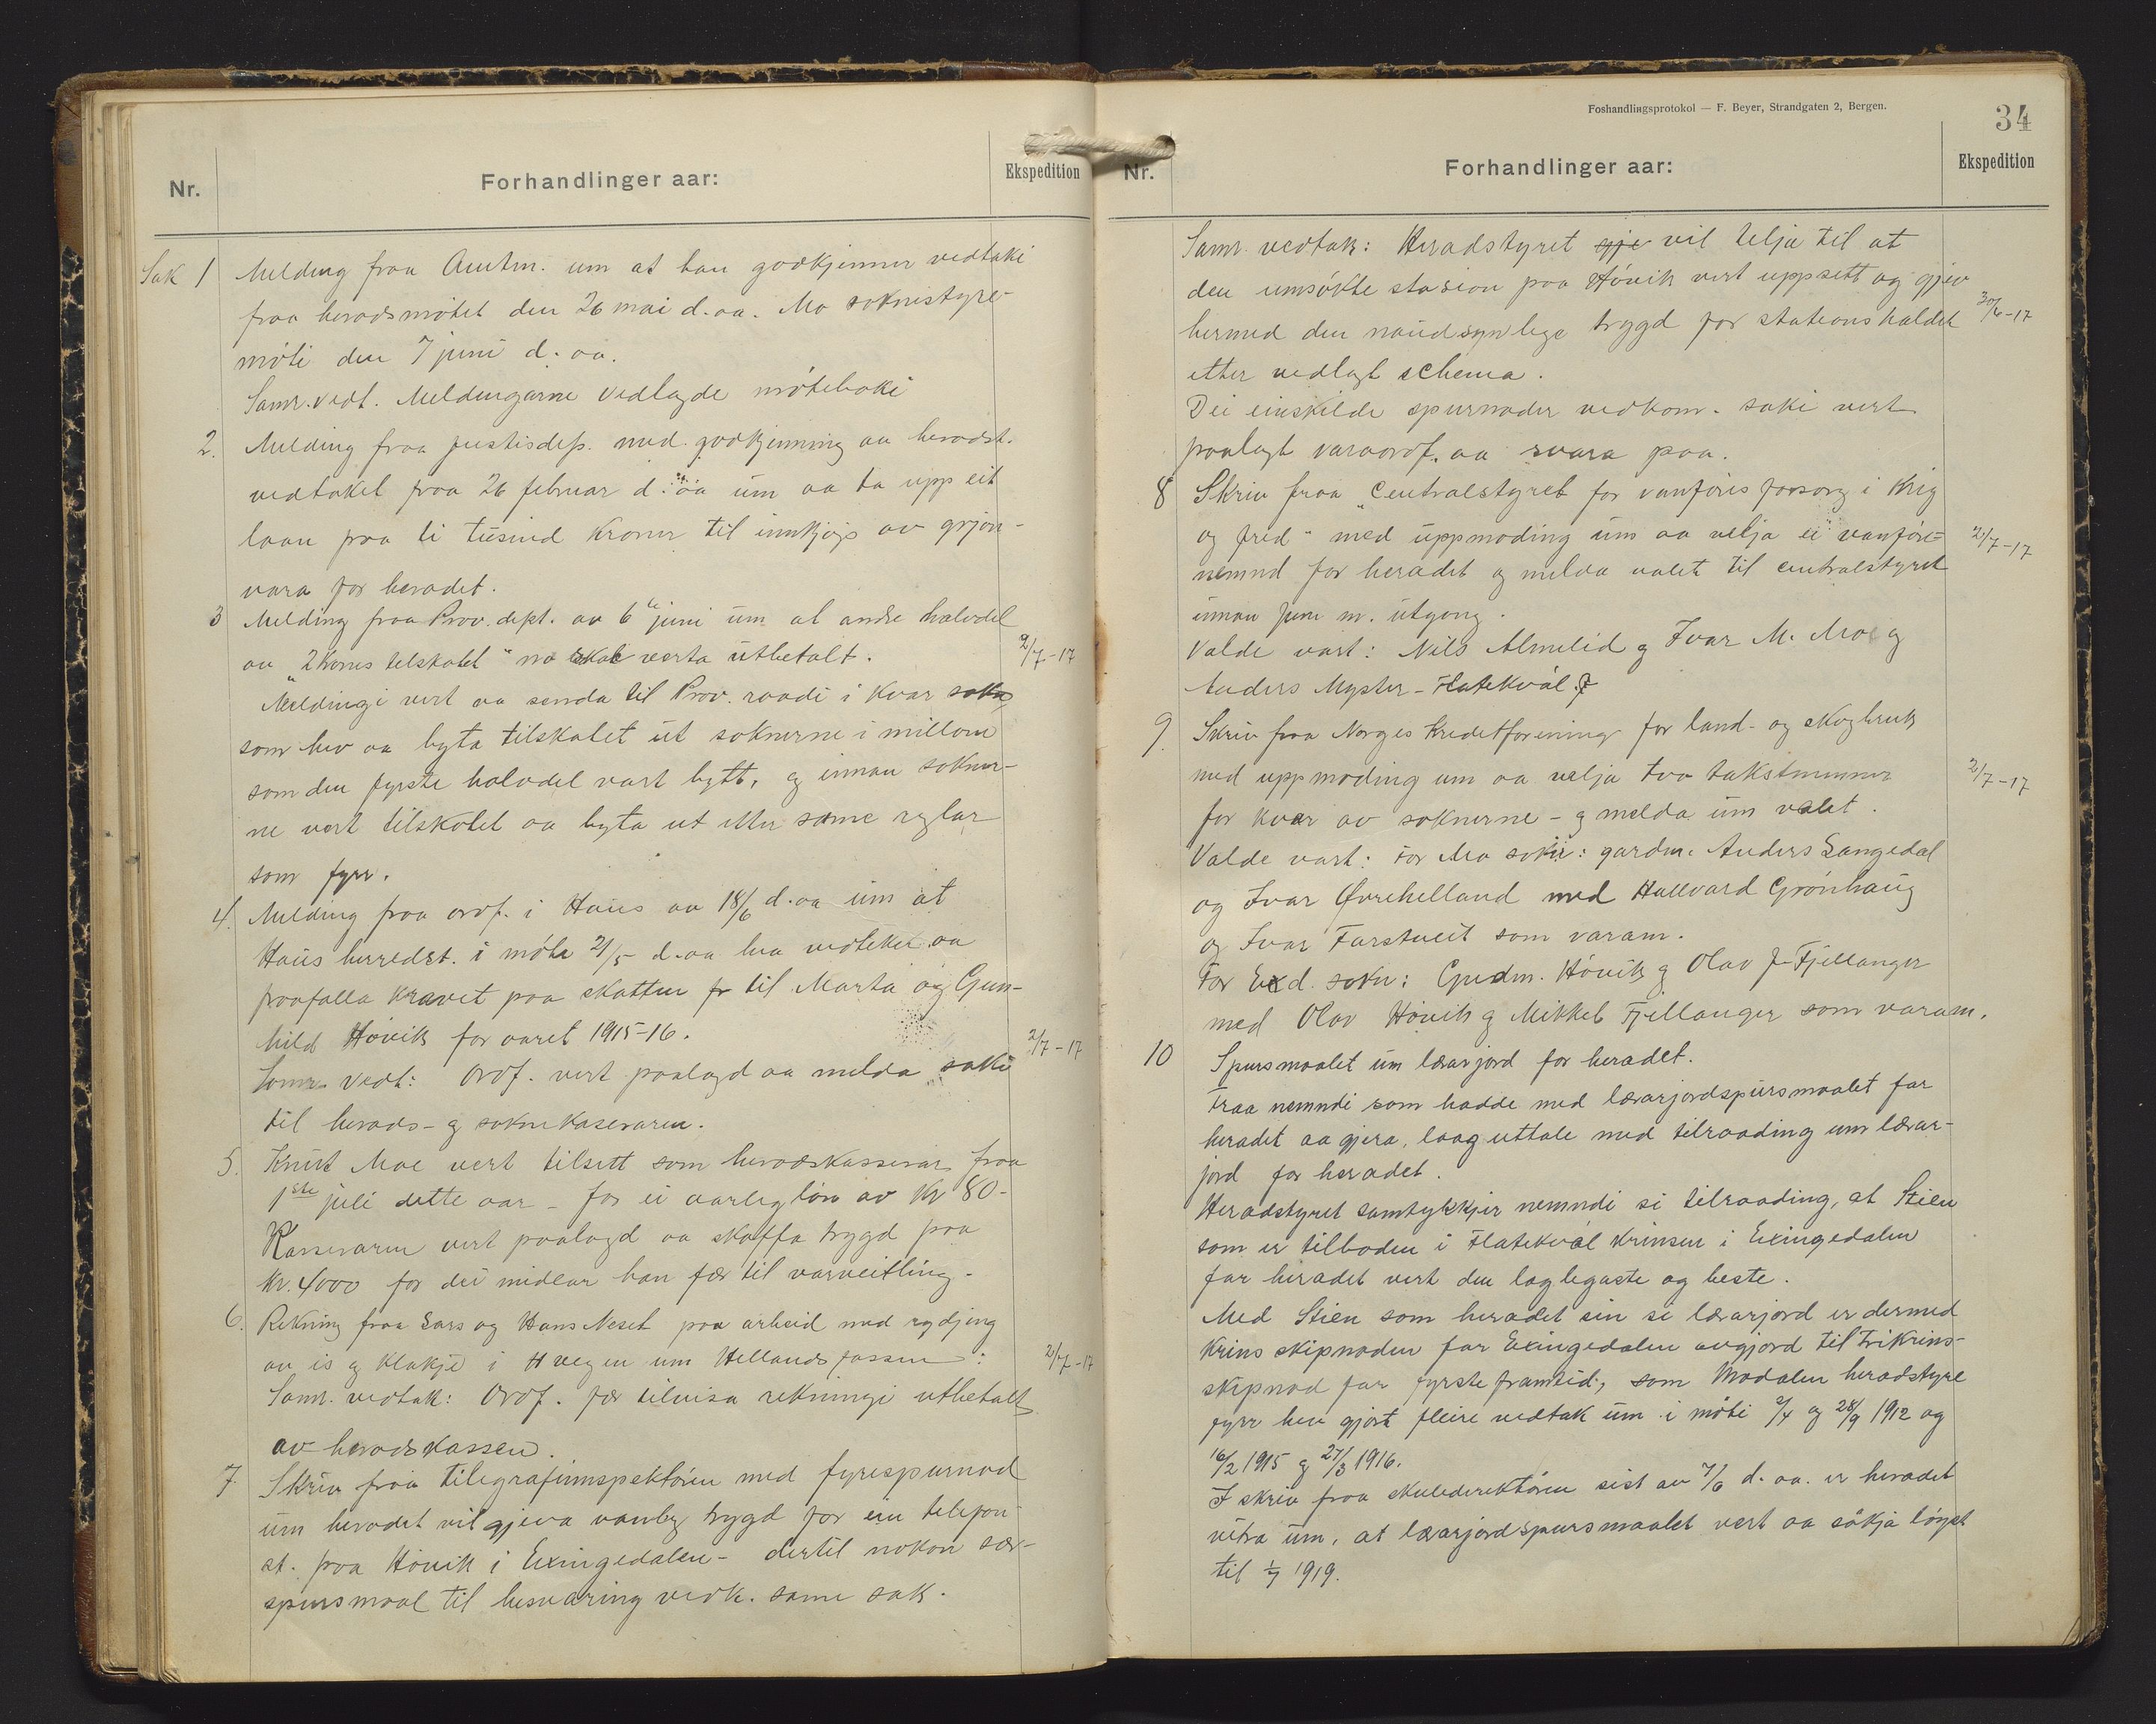 Nr.
Forhandlinger aar:
Ekspedition
Sak 1 Melding fraa Amtm. um at han godkjenner vedtaki
fraa heradsmøtet den 26 mai d. aa. Mo soknestyre-
møti den 7 juni d. aa.
Samr. vedt. Meldingarne vedlagde møteboki
2. Melding fraa justisdep. med godkjenning aa heradst.
vedtaket fraa 26 februar d. aa um aa ta upp eit
laan paa ti tusind kroner til innkjøp av grjon-
vara for heradet.
3 Melding fraa Prov. dept. av 6te juni um at andre halvdel
av "2 Krones tilskotet" no skal verta utbetalt.
2/7-17
Meldingi vert aa senda til Prov. raadi i kvar sokn
som hev aa byta tilskotet ut soknerne i millom
som den fyrste halvdel vart bytt, og innan sokner-
ne vert tilskotet aa byta ut etter same reglar
som fyrr.
4. Melding fraa ordf. i Haus av 18/6 d. aa um at
Haus herredst. i møte 21/5 d. aa hev vedteke aa
fraafalla kravet paa skatten fr til Marta og Gun-
hild Høvik for aaret 1915-16.
2/7-17
Samr. vedt: Ordf. vert paalagd aa melda saki
til herads- og soknekaseraren.
5. Knut Moe vert tilsett som heradskasserar fraa
1ste juli dette aar - for ei aarleg løn av Kr 80-
Kasseraren vert paalagd aa skaffa trygd paa
Kr. 4000 for dei midlar han fær til varveitling.
6. Rekning fraa Lars og Hans Neset paa arbeid med rydjing
av is og klakje i H vegen um Hellandsfossen:
2/7-17
Samr. vedtak: Ordf. fær tilvisa rekningi utbetalt
av heradskassen.
7 Skriv fraa tilegrafinnspektøren med fyrespurnad
um heradet vil gjeva vanleg trygd for ein telefon
st. paa Høvik i Exingedalen - dertil nokon sær-
spursmaal til besvaring vedk. same sak.
Foshandlingsprotokol — F. Beyer, Strandgaten 2, Bergen.
34
Nr.
Forhandlinger aar:
Ekspedition
Samr. vedtak: Heradstyret gje vil telja til at
den umsøkte stasion paa Høvik vert uppsett og gjev
hermed den naudsynlege trygd for stationshaldet
30/6-17
etter vedlagt schema.
Dei einskilde spurnader vedkom. saki vert
paalagt varaordf. aa svara paa.
8 Skriv fraa "Centralstyret for vanføres forsorg i krig
og fred" med uppmoding um aa velja ei vanføre-
2/7-17
nemnd for heradet og melda valet til centralstyret
innan juni m. utgong.
Valde vart: Nils Almelid og Ivar M. Mo og
Anders Myster - Flatekvål.
9. Skriv fraa Norges Kreditforening for land- og skogbruk
med uppmoding um aa velja tvo takstmenner
2/7-17
for kvar av soknerne - og melda um valet.
Valde vart: For Mo sokn: gardm. Anders Langedal
og Ivar Øvrehelland med Hallvard Grønhaug
og Ivar Farstveit som varam.
For Exd. sokn: Gudm. Høvik og Olav J. Fjellanger
med Olav Høvik og Mikkel Fjellanger som varam.
10 Spursmaalet um lærarjord for heradet.
Fraa nemndi som hadde med lærarjordspursmaalet for
heradet aa gjera, laag uttale med tilraading um lærar-
jord for heradet.
Heradstyret samtykkjer nemndi si tilraading, at Stien
som er tilboden i Flatekvål Krinsen i Exingedalen
for heradet vert den laglegaste og beste.
Med Stien som heradet sin si lærarjord er dermed
krins skipnaden for Exingedalen avgjord til trikrins-
skipnad for fyrste framtid, som Modalen heradstyre
fyrr hev gjort fleire vedtak um i møti 2/4 og 28/9 1912 og
16/2 1915 og 27/3 1916.
I skriv fraa skuledirektøren sist av 7/6 d. aa. er heradet
vitra um, at lærarjordspursmaalet vert aa søkja løyst
til 1/7 1919.